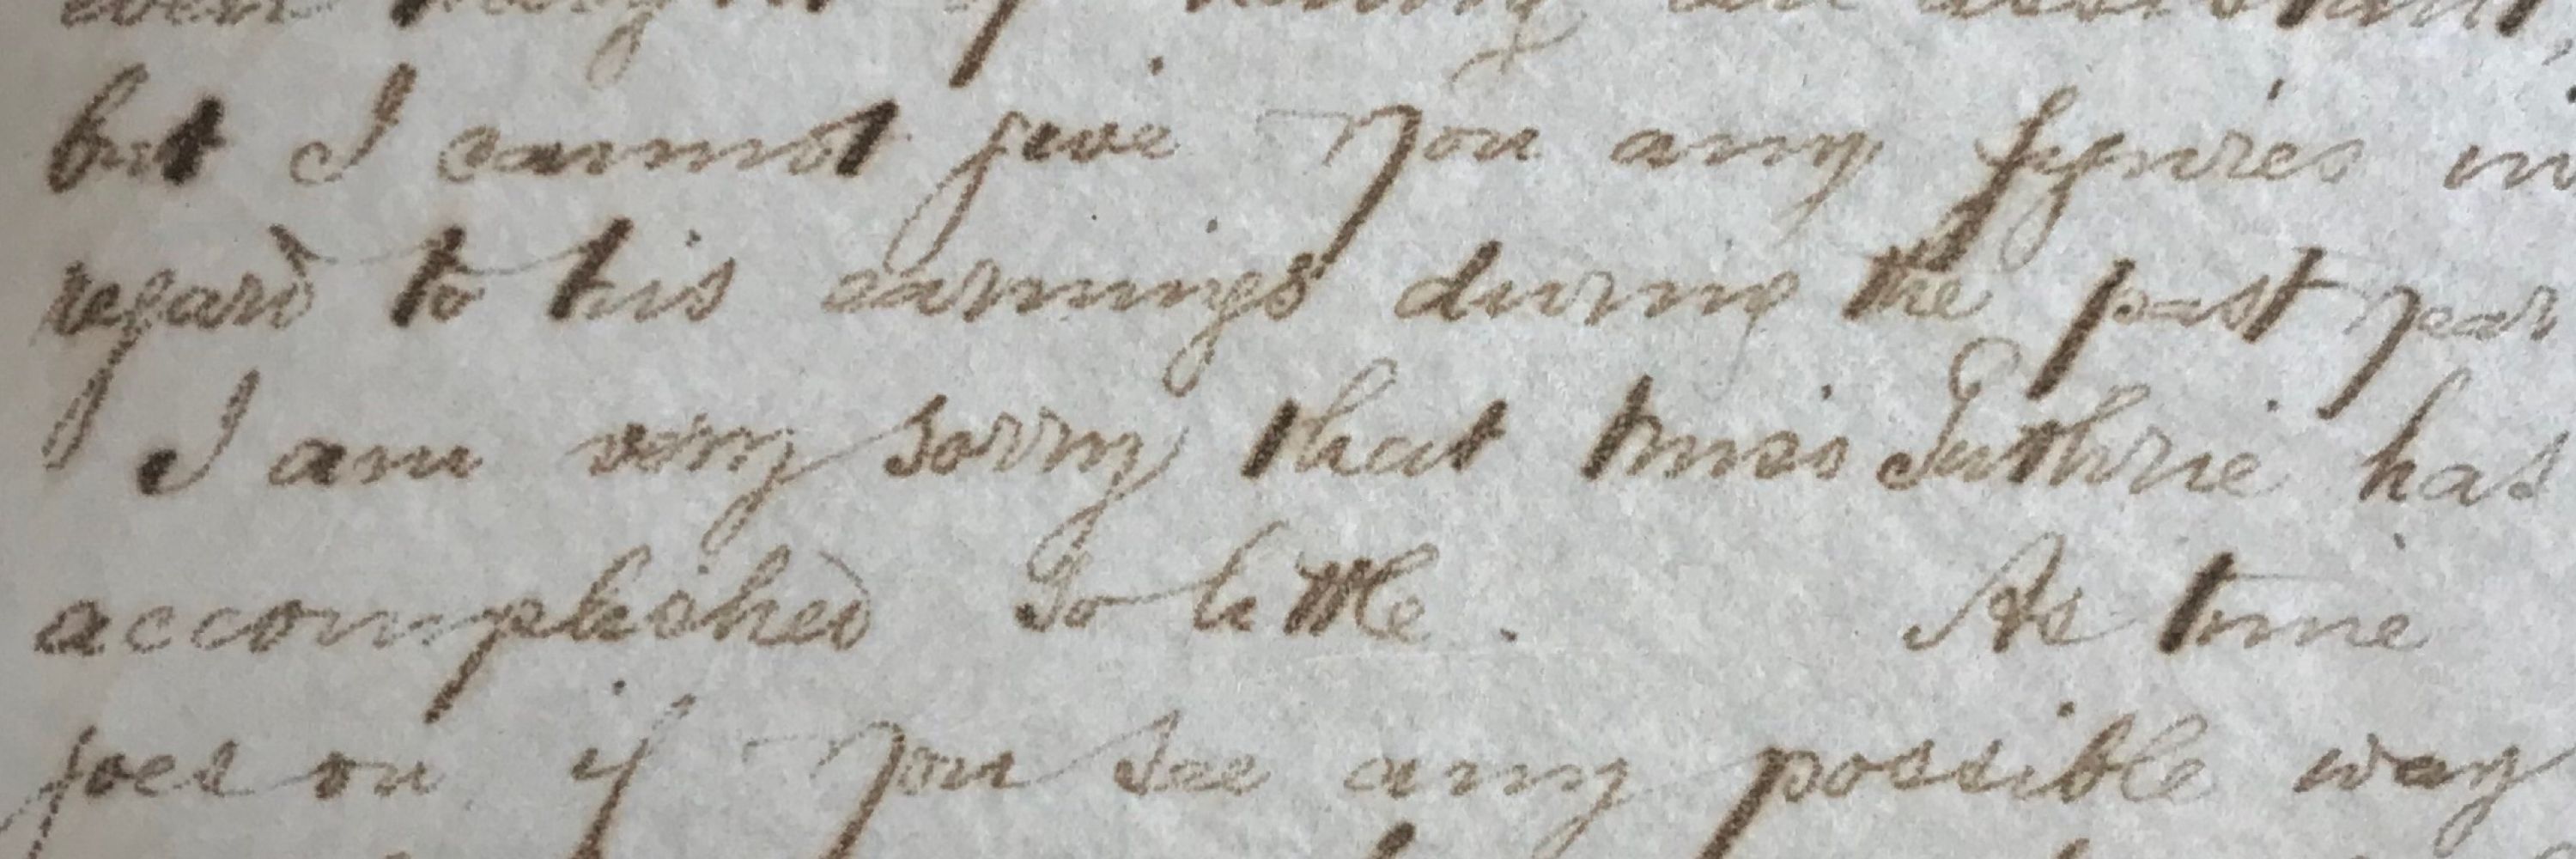 but I cannot give you any figures in
regard to his earnings during the past year
I am very sorry that Miss Guthrie has
accomplished so little. As time
goes on if you see any possible way